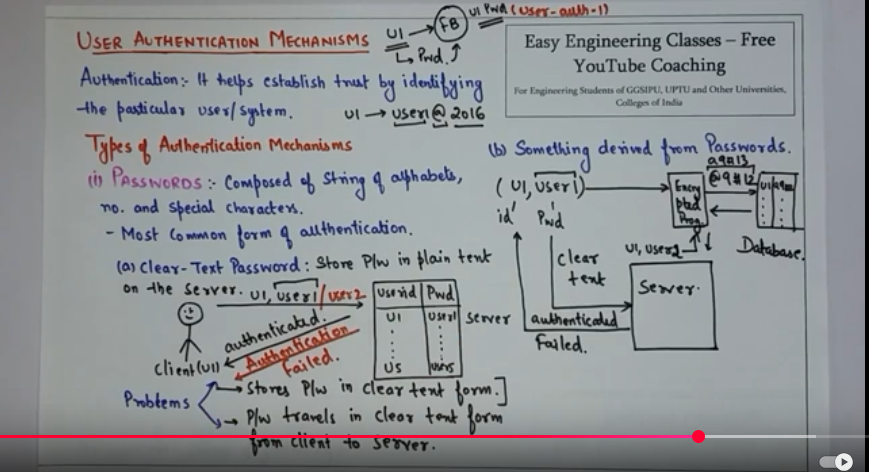 USER AUTHENTICATION MECHANISMS
U1 → FB
Pwd.
U1 Pwd (user-auth-1)
Easy Engineering Classes – Free
YouTube Coaching
For Engineering Students of GGSIPU, UPTU and Other Universities,
Colleges of India
Authentication:- It helps establish trust by identifying
the particular user/system.
U1 → user1@2016
Types of Authentication Mechanisms
(i) PASSWORDS :- Composed of String of alphabets,
no. and special characters.
- Most Common form of authentication.
(a) Clear-Text Password : Store P/w in plain text
on the server.
U1, user1/user2
authenticated.
Authentication
Failed.
client(U1)
Userid Pwd
U1 user1
U5 user5
server
Problems
→ Stores P/w in clear text form.]
→ P/w travels in clear text form
from client to server.
(b) Something derived from Passwords.
(U1, user1)
id Pwd
Encry
pted
Prog.
a9#13
@9#12
U1
Database.
U1, user2
clear
text
Server.
authenticated
Failed.